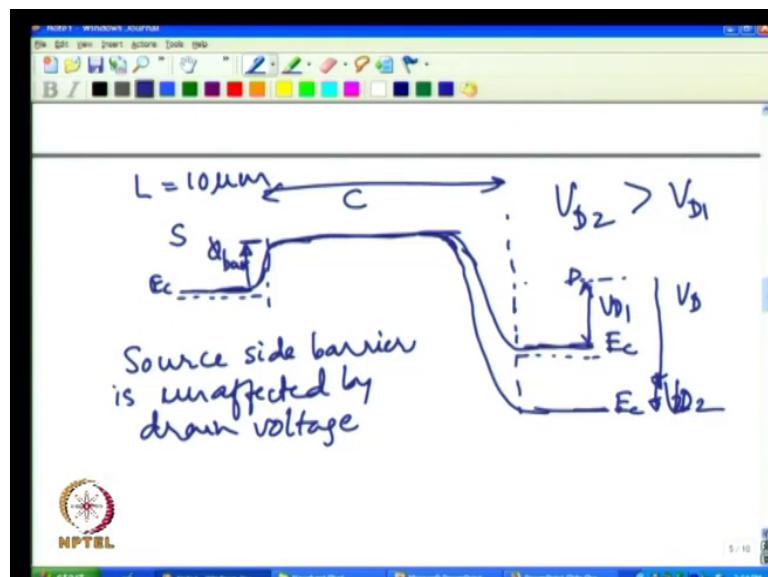 Note1 - Windows Journal
File Edit View Insert Actions Tools Help
B I
L = 10 μm
C
V_D2 > V_D1
S
Ec
D
V_D1
V_D
Ec
Source side barrier
is unaffected by
drain voltage
Ec
V_D2
NPTEL
5 / 10